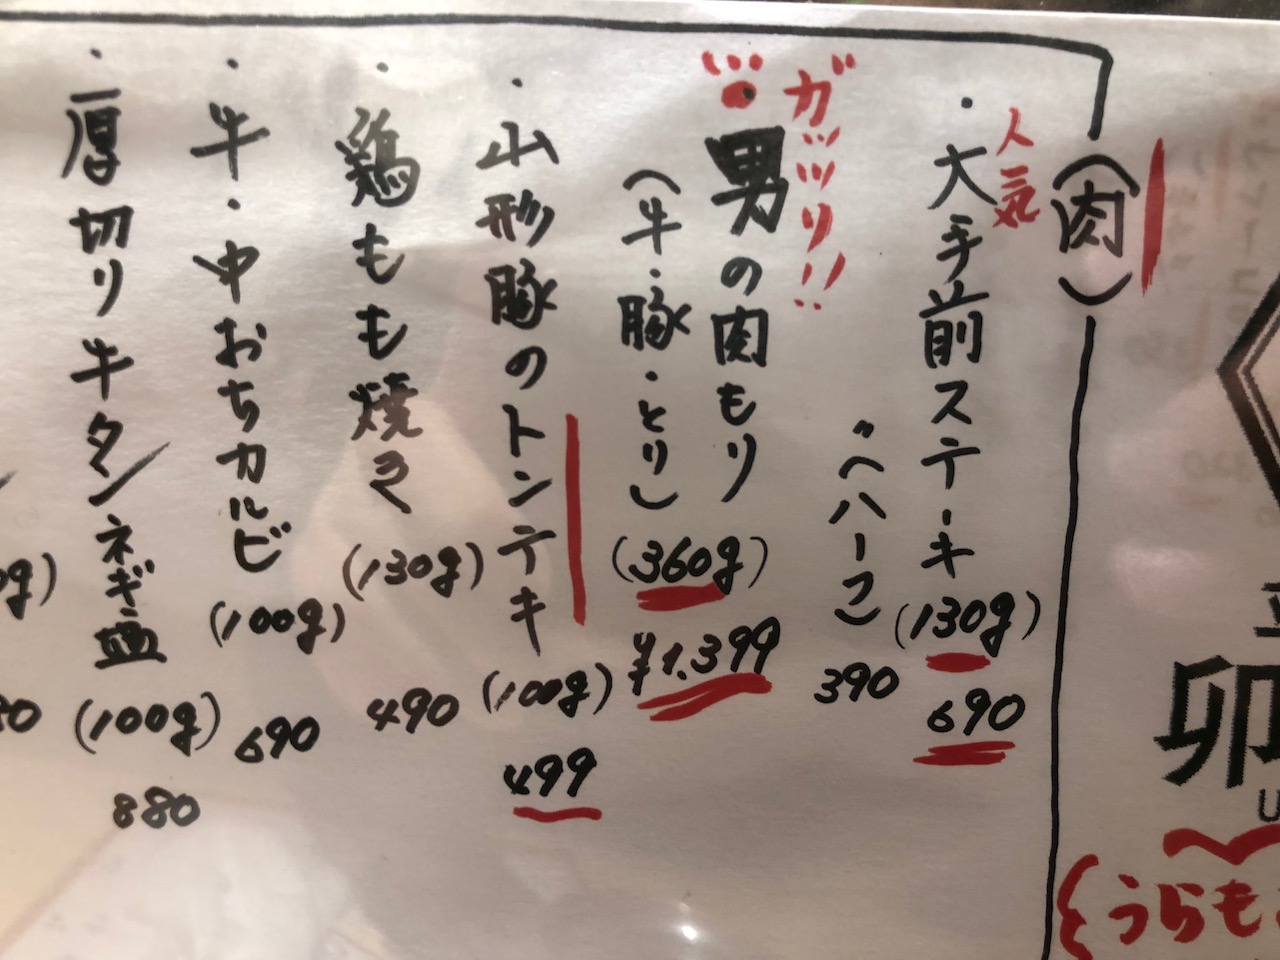 卯
うらも
(肉)
人気
・大手前ステーキ (130g) 690
〃(ハーフ) 390
ガッツリ!!
男の肉もり (360g) ¥1,399
(牛・豚・とり)
・山形豚のトンテキ (100g) 499
・鶏もも焼き (130g) 490
・牛・中おちカルビ (100g) 690
・厚切り牛タンネギ塩 (100g) 880